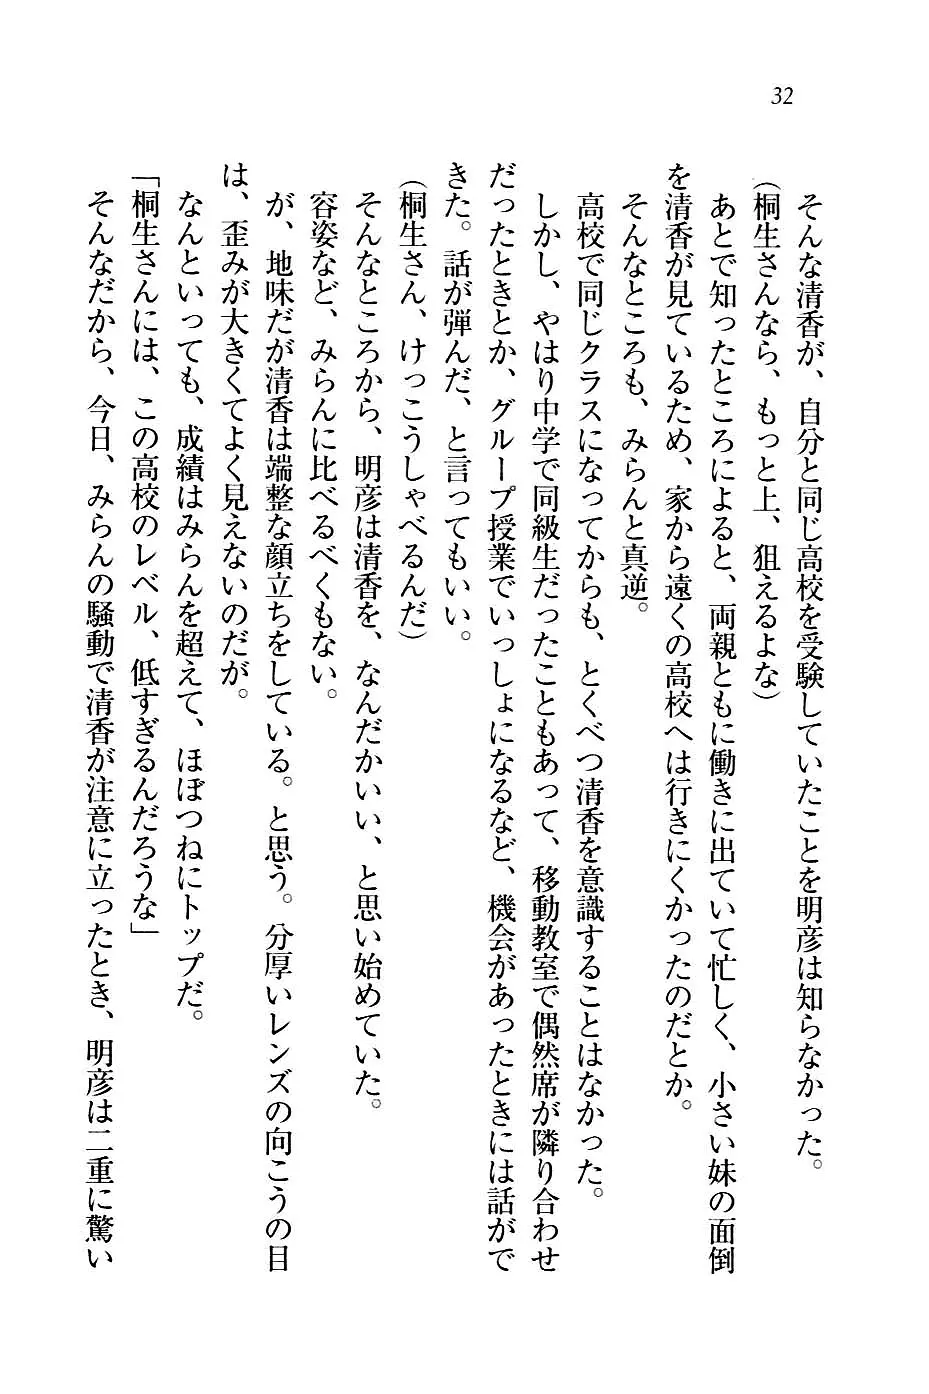 32
そんな清香が、自分と同じ高校を受験していたことを明彦は知らなかった。
（桐生さんなら、もっと上、狙えるよな）
あとで知ったところによると、両親ともに働きに出ていて忙しく、小さい妹の面倒
を清香が見ているため、家から遠くの高校へは行きにくかったのだとか。
そんなところも、みらんと真逆。
高校で同じクラスになってからも、とくべつ清香を意識することはなかった。
しかし、やはり中学で同級生だったこともあって、移動教室で偶然席が隣り合わせ
だったときとか、グループ授業でいっしょになるなど、機会があったときには話がで
きた。話が弾んだ、と言ってもいい。
（桐生さん、けっこうしゃべるんだ）
そんなところから、明彦は清香を、なんだかいい、と思い始めていた。
容姿など、みらんに比べるべくもない。
が、地味だが清香は端整な顔立ちをしている。と思う。分厚いレンズの向こうの目
は、歪みが大きくてよく見えないのだが。
なんといっても、成績はみらんを超えて、ほぼつねにトップだ。
「桐生さんには、この高校のレベル、低すぎるんだろうな」
そんなだから、今日、みらんの騒動で清香が注意に立ったとき、明彦は二重に驚い